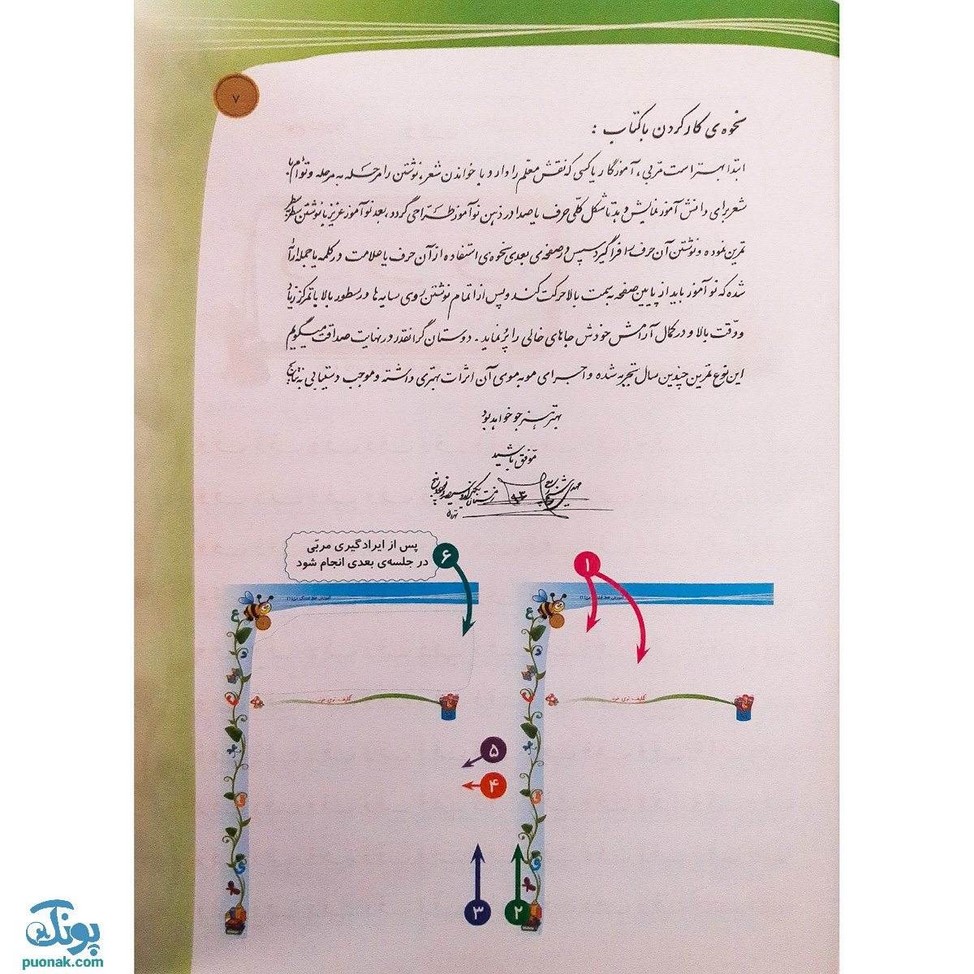 ۷
نحوه‌ی کار کردن با کتاب :
ابتدا بهتر است مربّی، آموزگار یا کسی که نقش معلم را دارد با خواندن شعر، نوشتن را مرحله به مرحله و توأم با
شعر برای دانش آموز نمایش دهد تا شکل کلی حرف یا صدا در ذهن نوآموز طراحی گردد، بعد نوآموز عزیز با نوشتن سطر به سطر
تمرین نموده و نوشتن آن حرف را فرا گیرد سپس در صفحه‌ی بعدی نحوه‌ی استفاده از آن حرف یا علامت در کلمه یا جمله ارائه
شده که نوآموز باید از پایین صفحه به سمت بالا حرکت کند و پس از اتمام نوشتن روی سایه ها در سطور بالا با تمرکز زیاد
و دقت بالا و در کمال آرامش خودش جاهای خالی را پر نماید. دوستان گرانقدر در نهایت صداقت میگویم
این نوع تمرین چندین سال تجربه شده و اجرای مو به موی آن اثرات بهتری داشته و موجب دستیابی به نتایج
بهتر هنرجو خواهد بود
موفق باشید
پس از ایرادگیری مربّی
در جلسه‌ی بعدی انجام شود
۶
۱
۵
۴
۳
۲
پونک
puonak.com